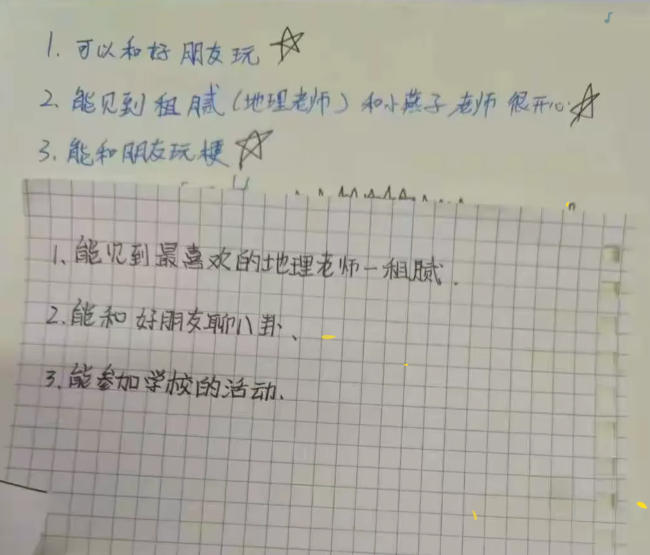 1. 可以和好朋友玩
2. 能见到租腻(地理老师)和小燕子老师很开心
3. 能和朋友玩梗
1. 能见到最喜欢的地理老师—租腻.
2. 能和好朋友聊八卦、
3. 能参加学校的活动.